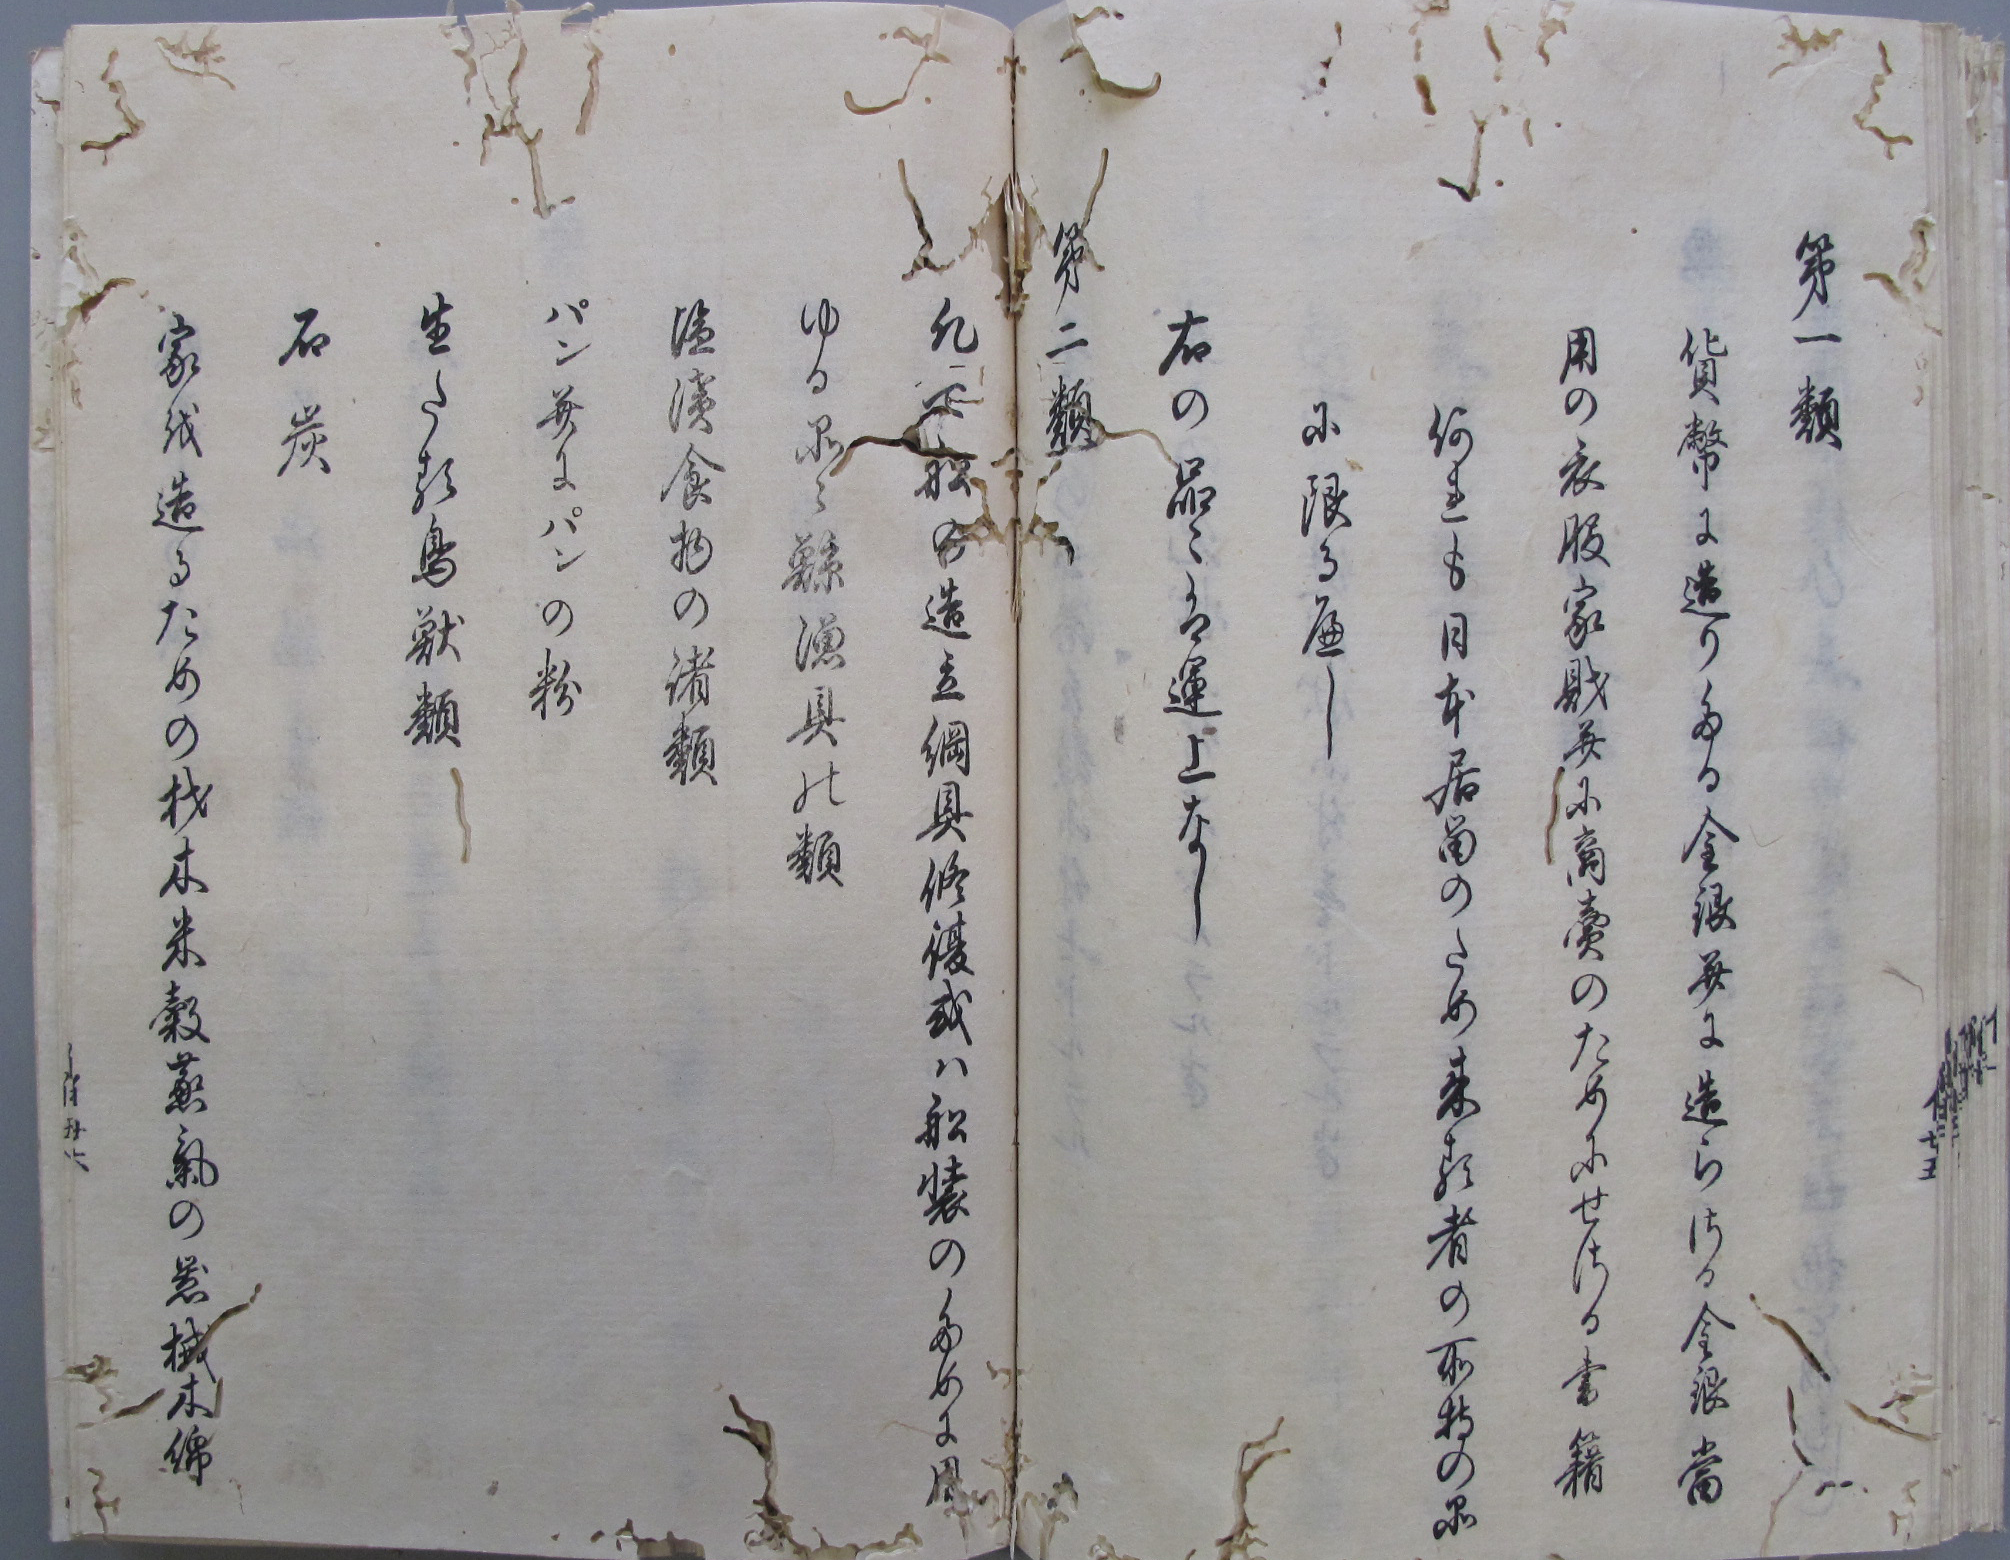 第一類
貨幣に造りたる金銀並に造らさる金銀當
用の衣服家財並に商賣のためにせさる書籍
何れも日本居留のため来る者の所持の品
に限るへし
右の品々は運上なし
第二類
凡て船の造立綱具修復或ハ船装のために用
ゆる品々鯨漁具の類
塩漬食物の諸類
パン並にパンの粉
生たる鳥獣類
石炭
家を造るための材木米穀蒸氣の器械木綿